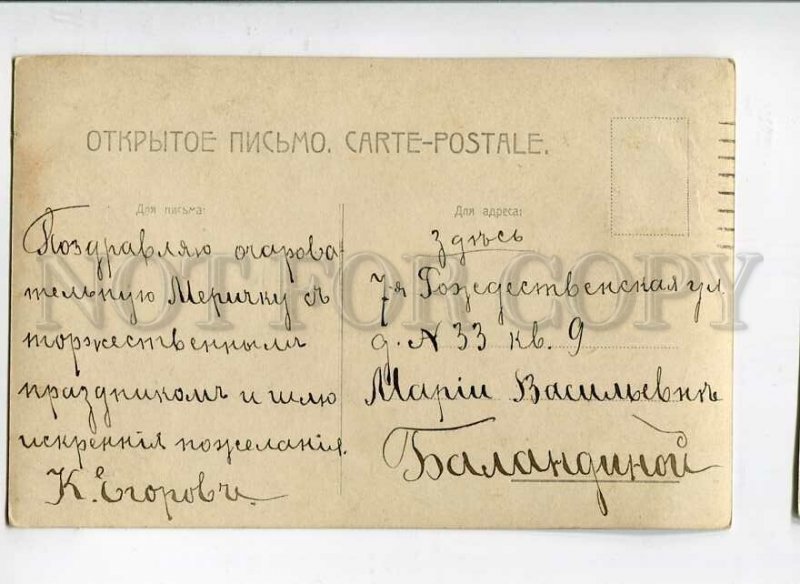 ОТКРЫТОЕ ПИСЬМО. CARTE-POSTALE.
Для письма:
Поздравляю очарова-
тельную Меричку съ
торжественнымъ
праздникомъ и шлю
искреннія пожеланія.
К. Егоровъ.
Для адреса:
Здѣсь
7-я Рождественская ул.
д. N 33 кв. 9
Маріи Васильевнѣ
Баландиной
NOT FOR COPY